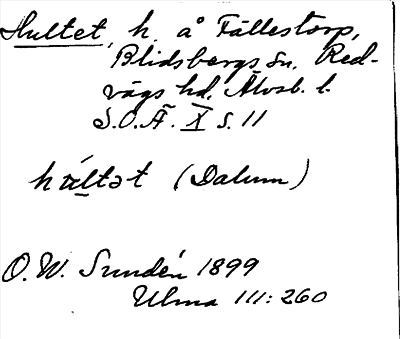 Hultet, h. å Fällestorp,
Blidsbergs sn. Red-
vägs hd. Älvsb. l.
S.O.Ä. X s. 11
húltət (Dalum)
O.W. Sundén 1899
Ulma 111:260